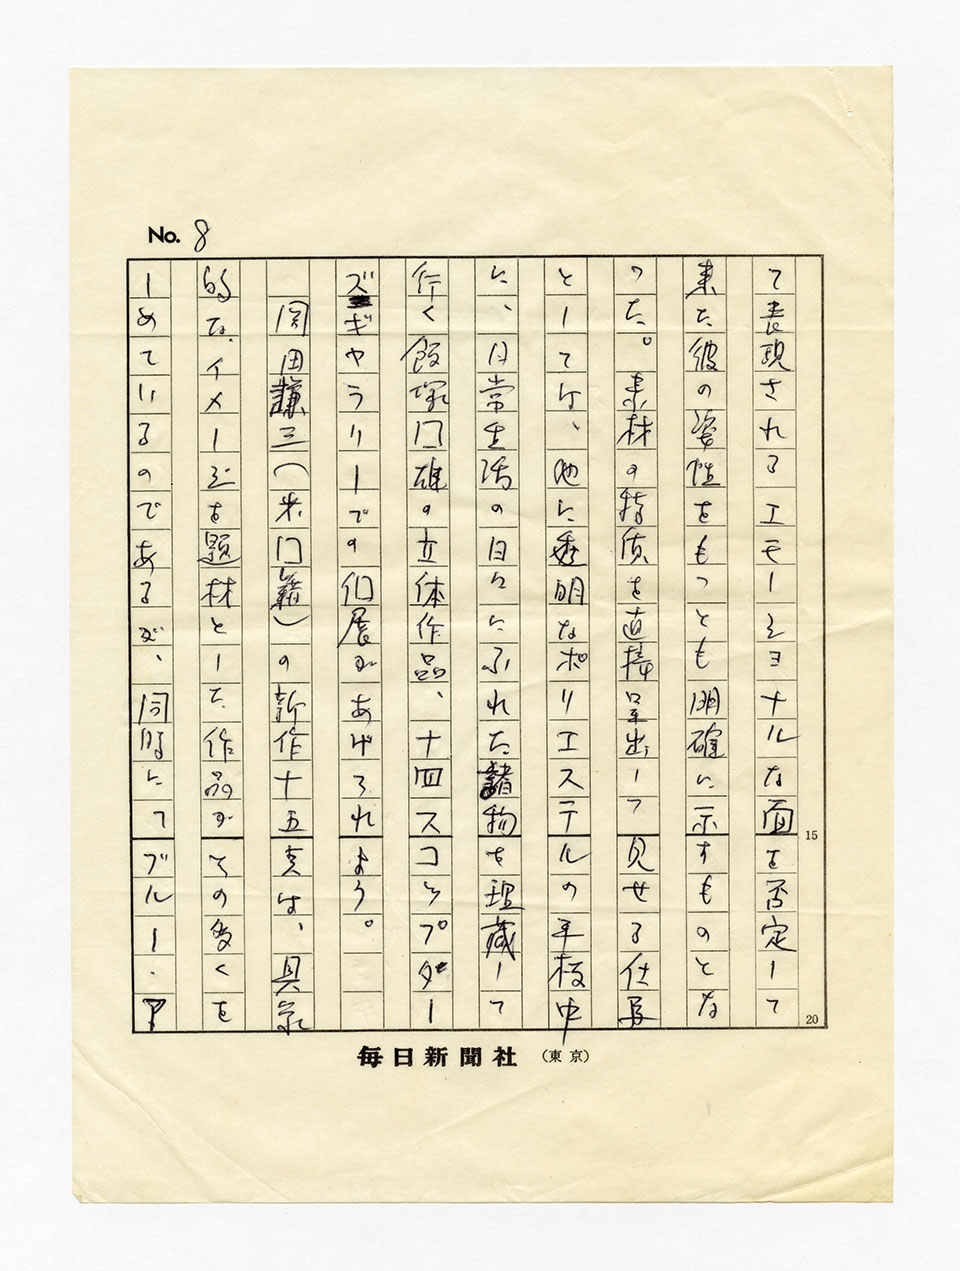 No. 8
て表現されるエモーショナルな面を否定して
来た彼の姿性をもっとも明確に示すものとな
った。素材の特質を直接呈出しつ見せる仕事
としては、他に透明なポリエステルの平板中
に、日常生活の日々にふれた諸物を埋蔵して
行く飯塚国雄の立体作品、十四スコンプダー
ズギャラリーでの個展があげられよう。
岡田謙三(米国籍)の新作十五点は、具象
的な、イメージを題材とした作品がその多くを
しめているのであるが、同時にてブルー・
15
20
毎日新聞社(東京)